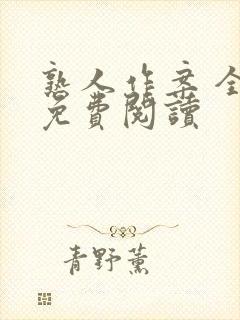 熟人作案全
免費閱讀
青野薰